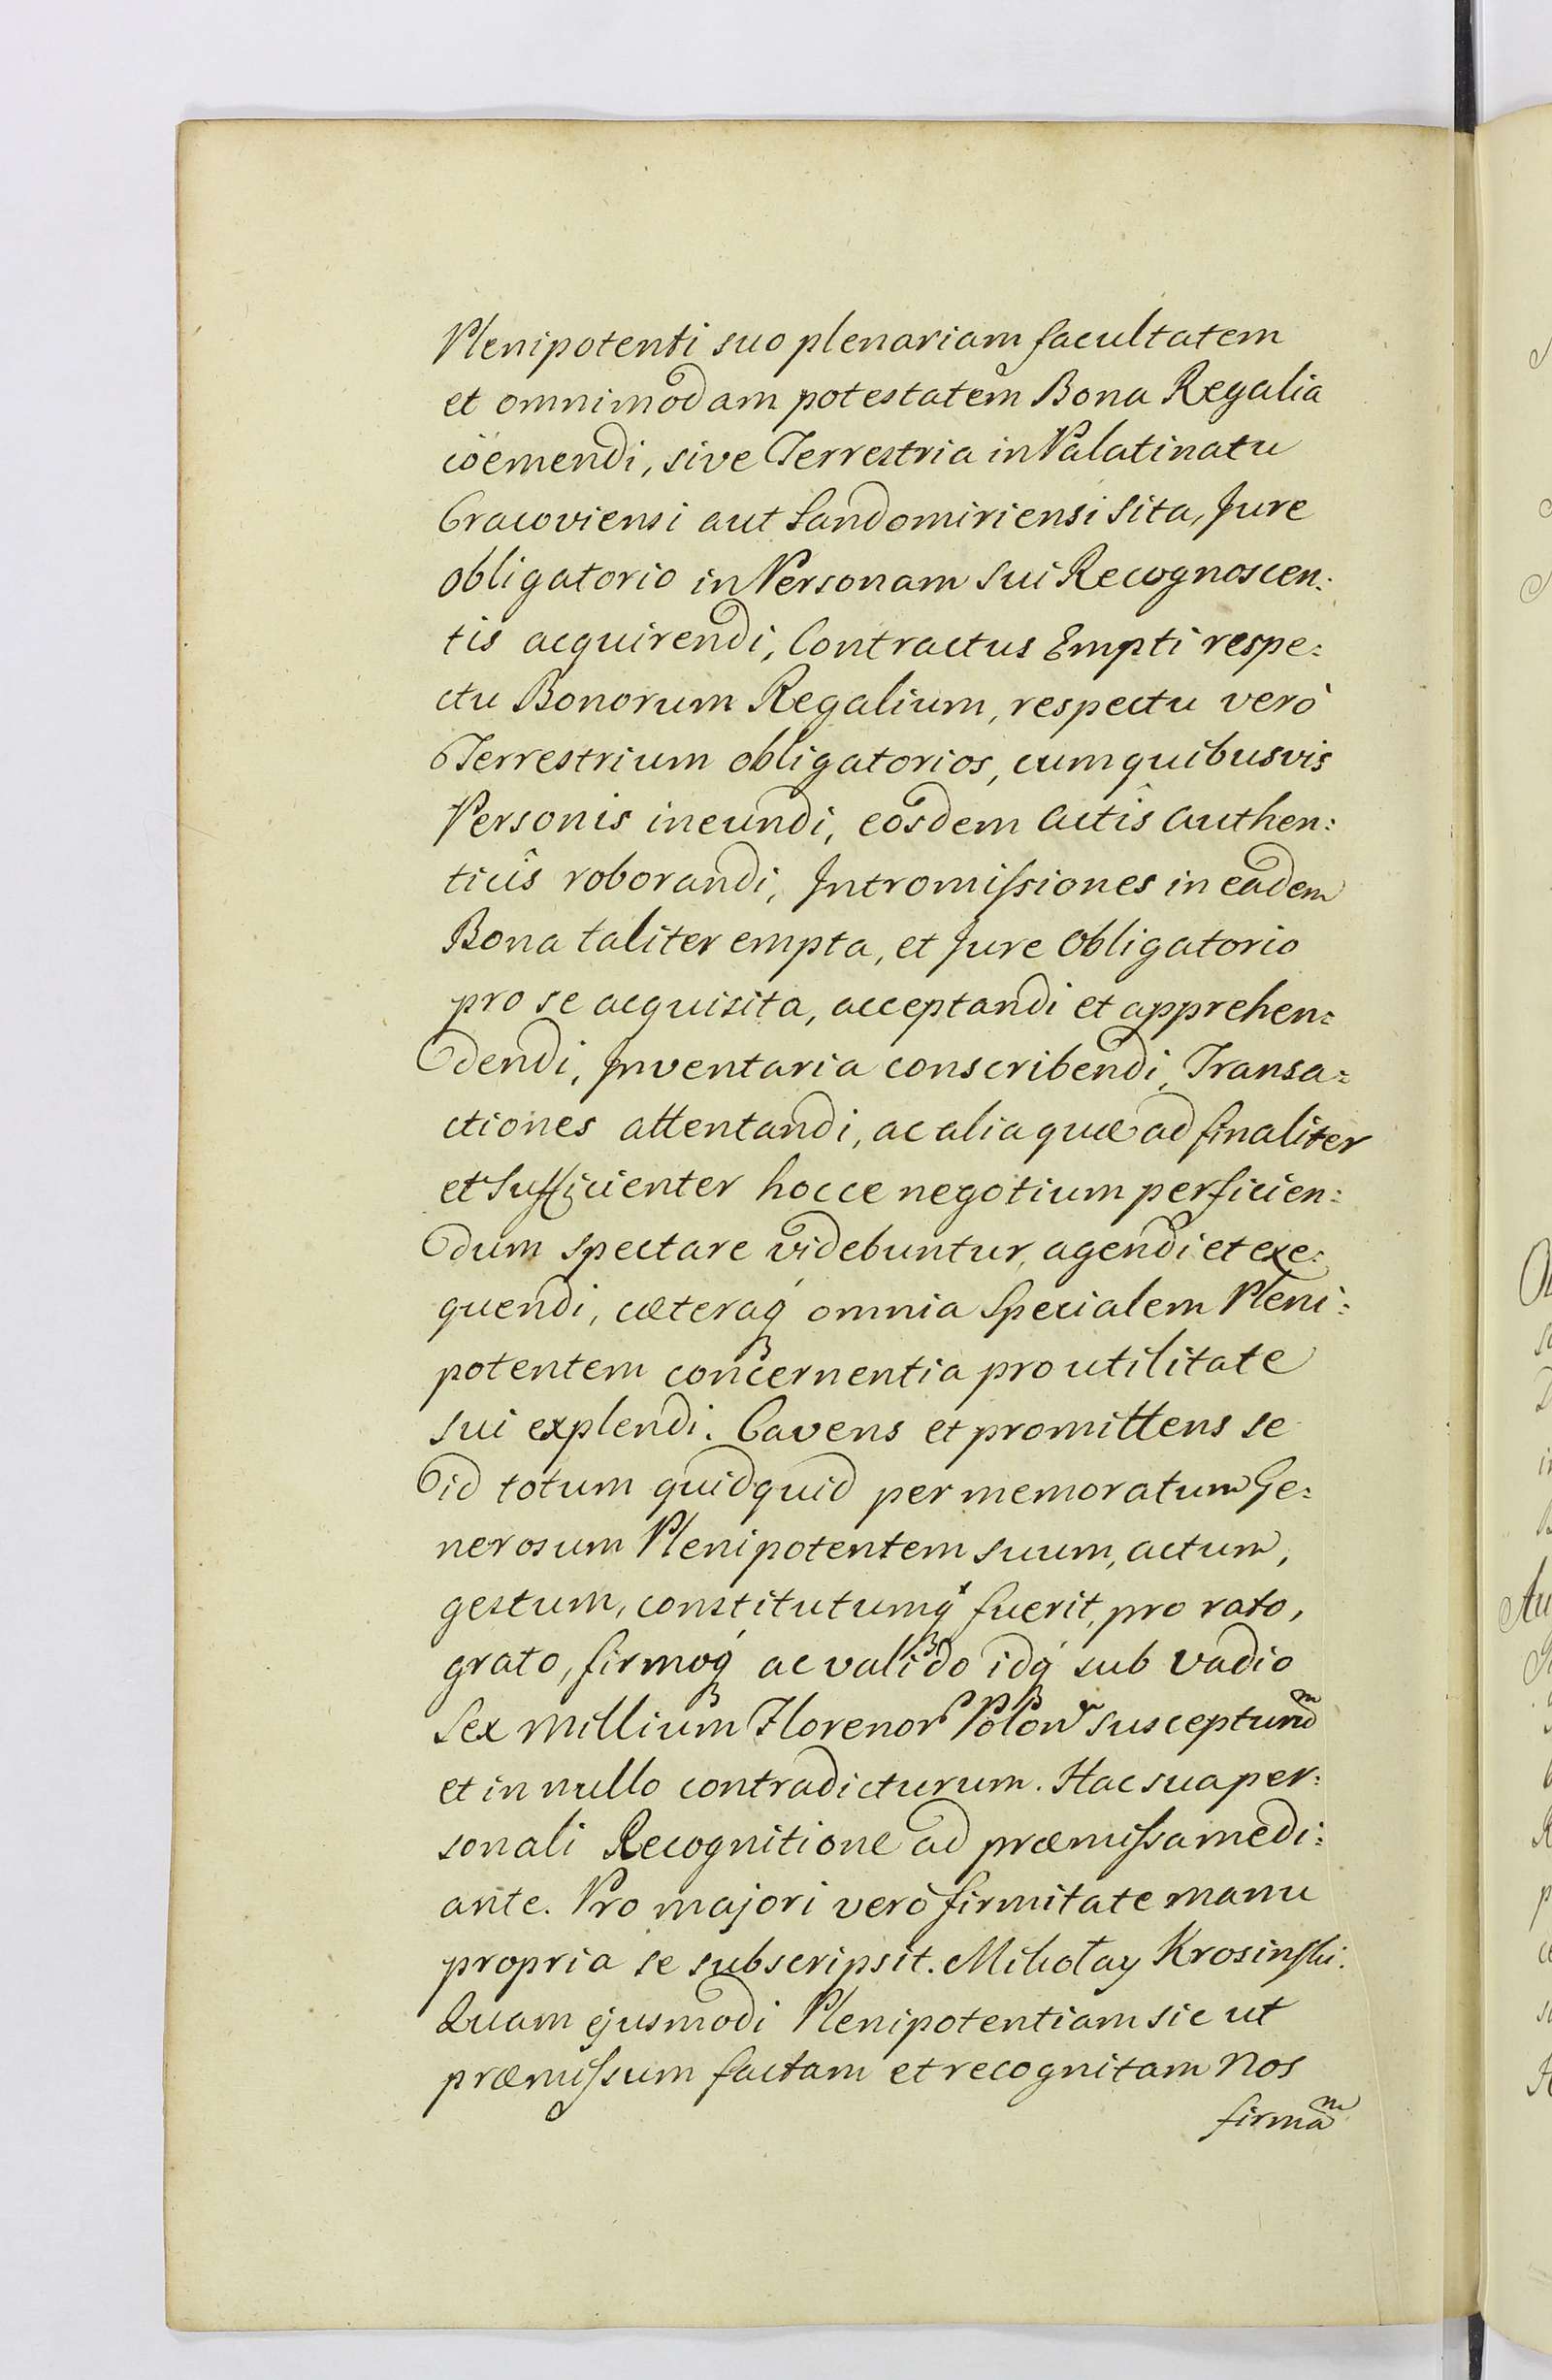 Plenipotenti suo plenariam facultatem
et omnimodam potestatem Bona Regalia
coëmendi, sive Terrestria in Palatinatu
Cracoviensi aut Sandomiriensi sita, Jure
obligatorio in Personam sui Recognoscen:
tis acquirendi, Contractus Empti respe:
ctu Bonorum Regalium, respectu verò
Terrestrium obligatorios, cum quibusvis
Personis ineundi, eosdem actîs authen:
ticîs roborandi, Intromissiones in eadem
Bona taliter empta, et Jure obligatorio
pro se acquisita, acceptandi et apprehen:
dendi, Inventaria conscribendi, Transa:
ctiones attentandi, ac alia quæ ad finaliter
et sufficienter hocce negotium perficien:
dum spectare videbuntur, agendi et exe:
quendi, cæteraq́ omnia Specialem Pleni:
potentem concernentia pro utilitate
sui explendi. Cavens et promittens se
id totum quidquid per memoratum Ge:
nerosum Plenipotentem suum, actum,
gestum, constitutumq́ fuerit, pro rato,
grato, firmoq́ ac valido idq́ sub vadio
Sex Millium Florenor Polon suscepturum
et in nullo contradicturum. Hac sua per:
sonali Recognitione ad præmissa medi:
ante. Pro majori verò firmitate manu
propria se subscripsit. Mikołay Krosinski.
Quam ejusmodi Plenipotentiam sic ut
præmissum factam et recognitam Nos
firmaᵐ